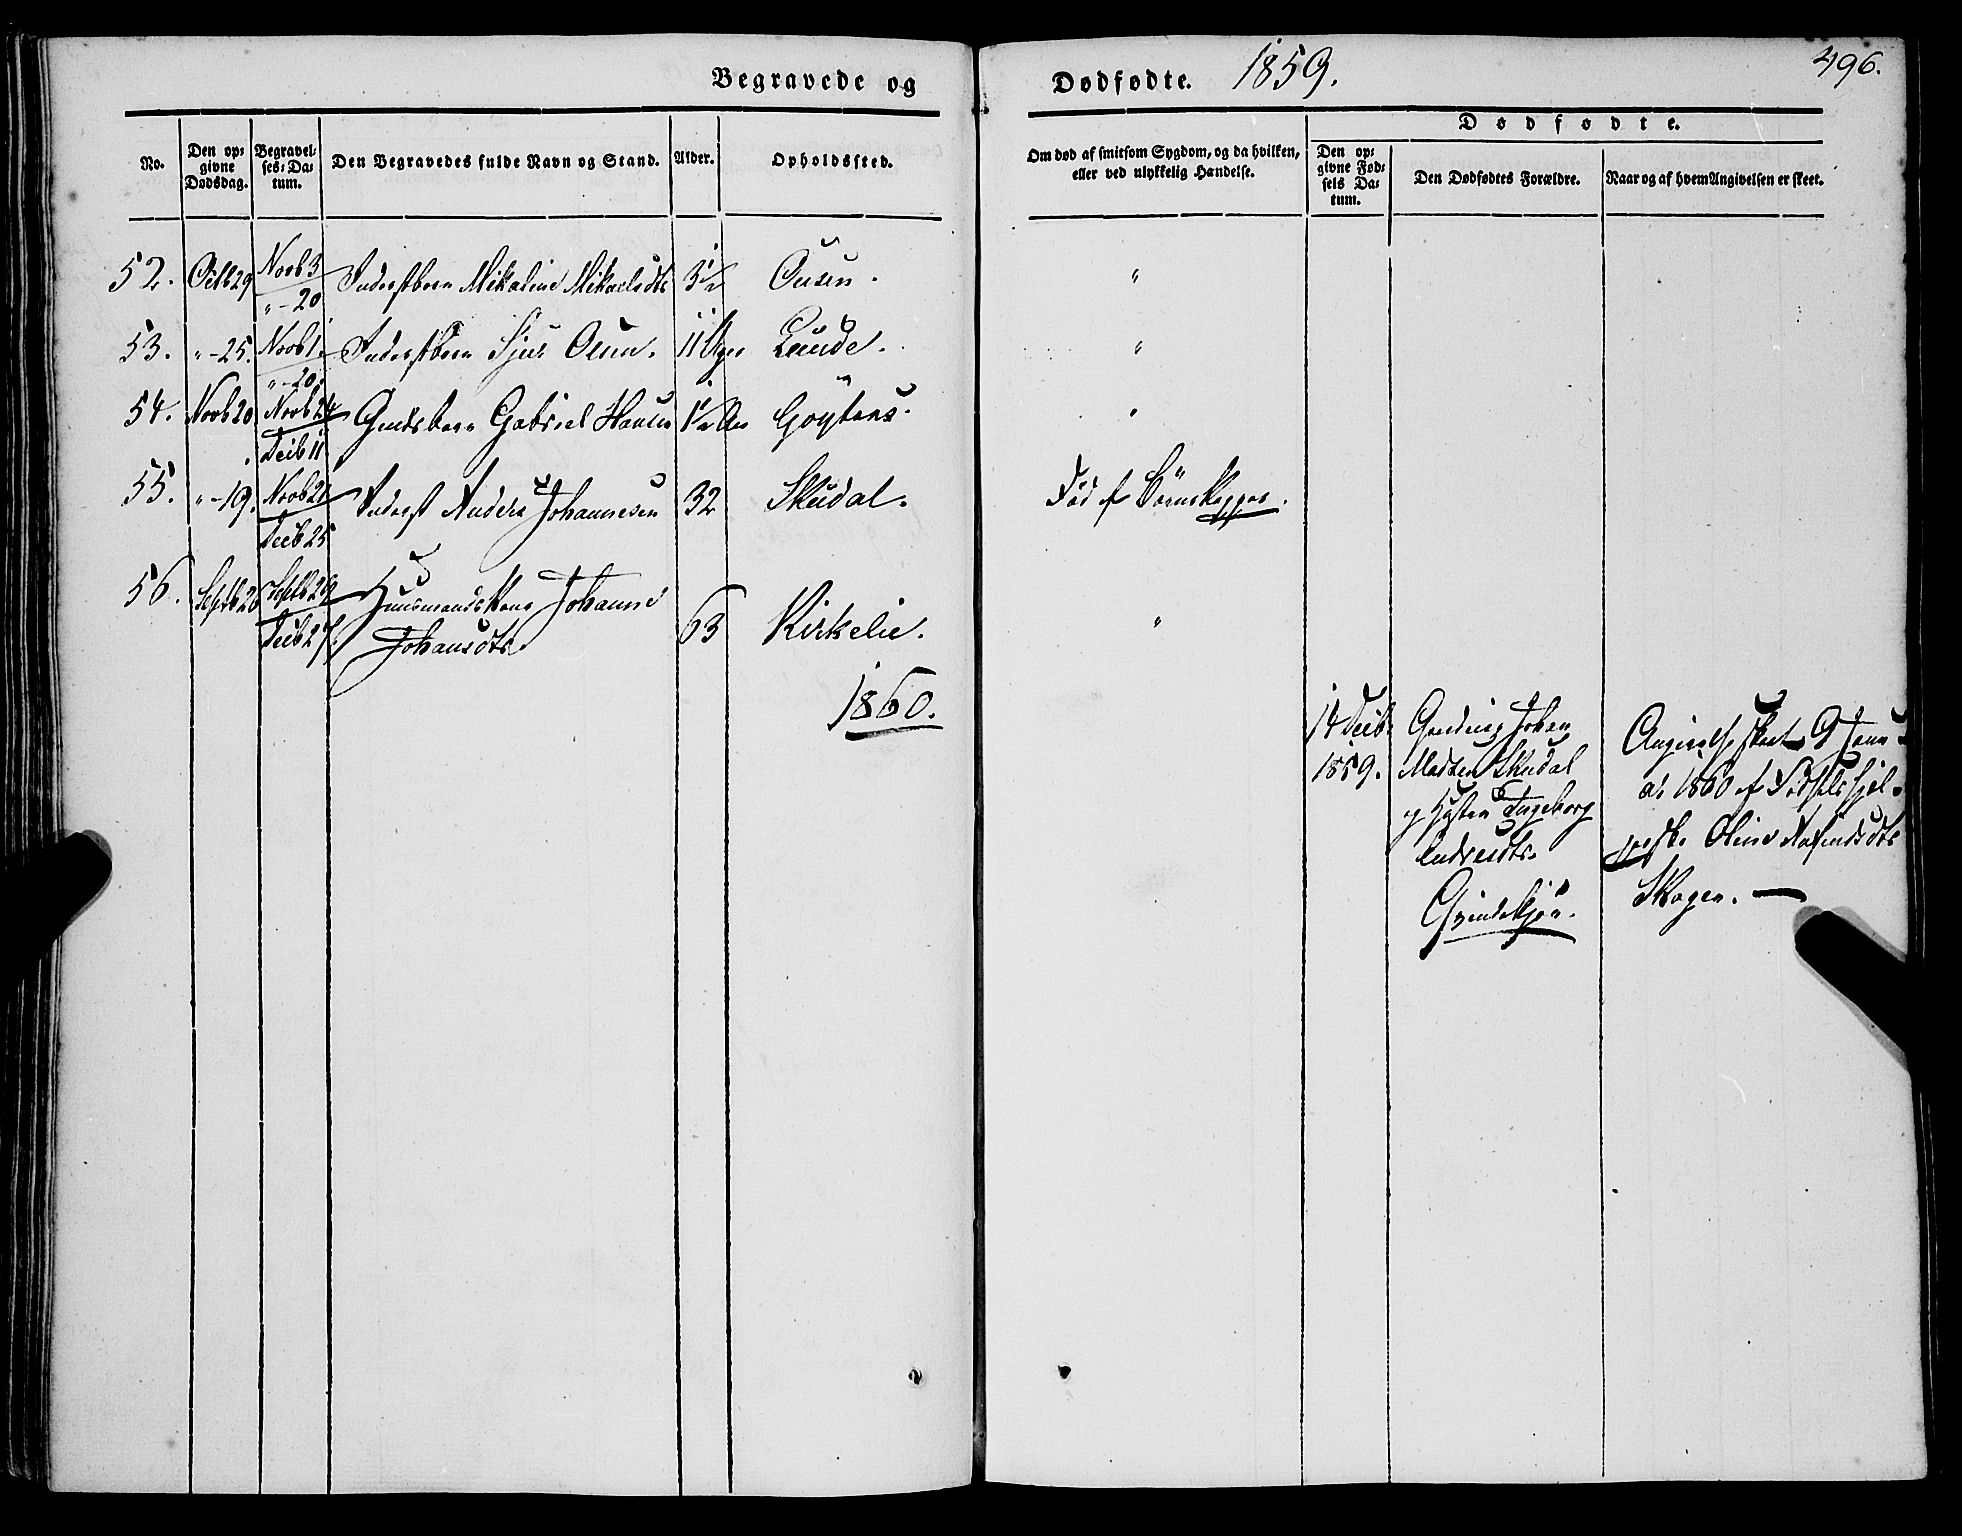 Begravede og Dødfødte. 1859. 496.
No.
Den opgivne Dødsdag.
Begravelses-Datum.
Den Begravedes fulde Navn og Stand.
Alder.
Opholdssted.
Om død af smitsom Sygdom, og da hvilken, eller ved ulykkelig Hændelse.
Dødfødte.
Den opgivne Fødsels Datum.
Den Dødfødtes Forældre.
Naar og af hvem Angivelsen er skeet.
52. Octb 29 Novb 3 " - 20 Inderstbarn Mikaline Mikaelsdtr 3 1/2 "
53. " - 25. Novb 1. " - 20. Inderstbarn Sjur Olsen. 11 Uger Lunde. "
54. Novb 20 Novb 24 Decb 11 Gabriel Hansen 1 1/2 Aar "
55. " - 19. Novb 21 Decb 25 Inderst Anders Johannesen 32 Skudal. Død af
56. Septb 26 Septb 29 Decb 27. Huusmandskone Johanne
Johansdtr. 63 Kirkelie. "
1860.
14 Decb.
1859.
Johan
Madsen Skudal
og Hustru Ingeborg
Endresdtr.
Angivelse skeet 9 Janu-
ar 1860 af Fødselshjel-
persk. Oline
Skogen. —